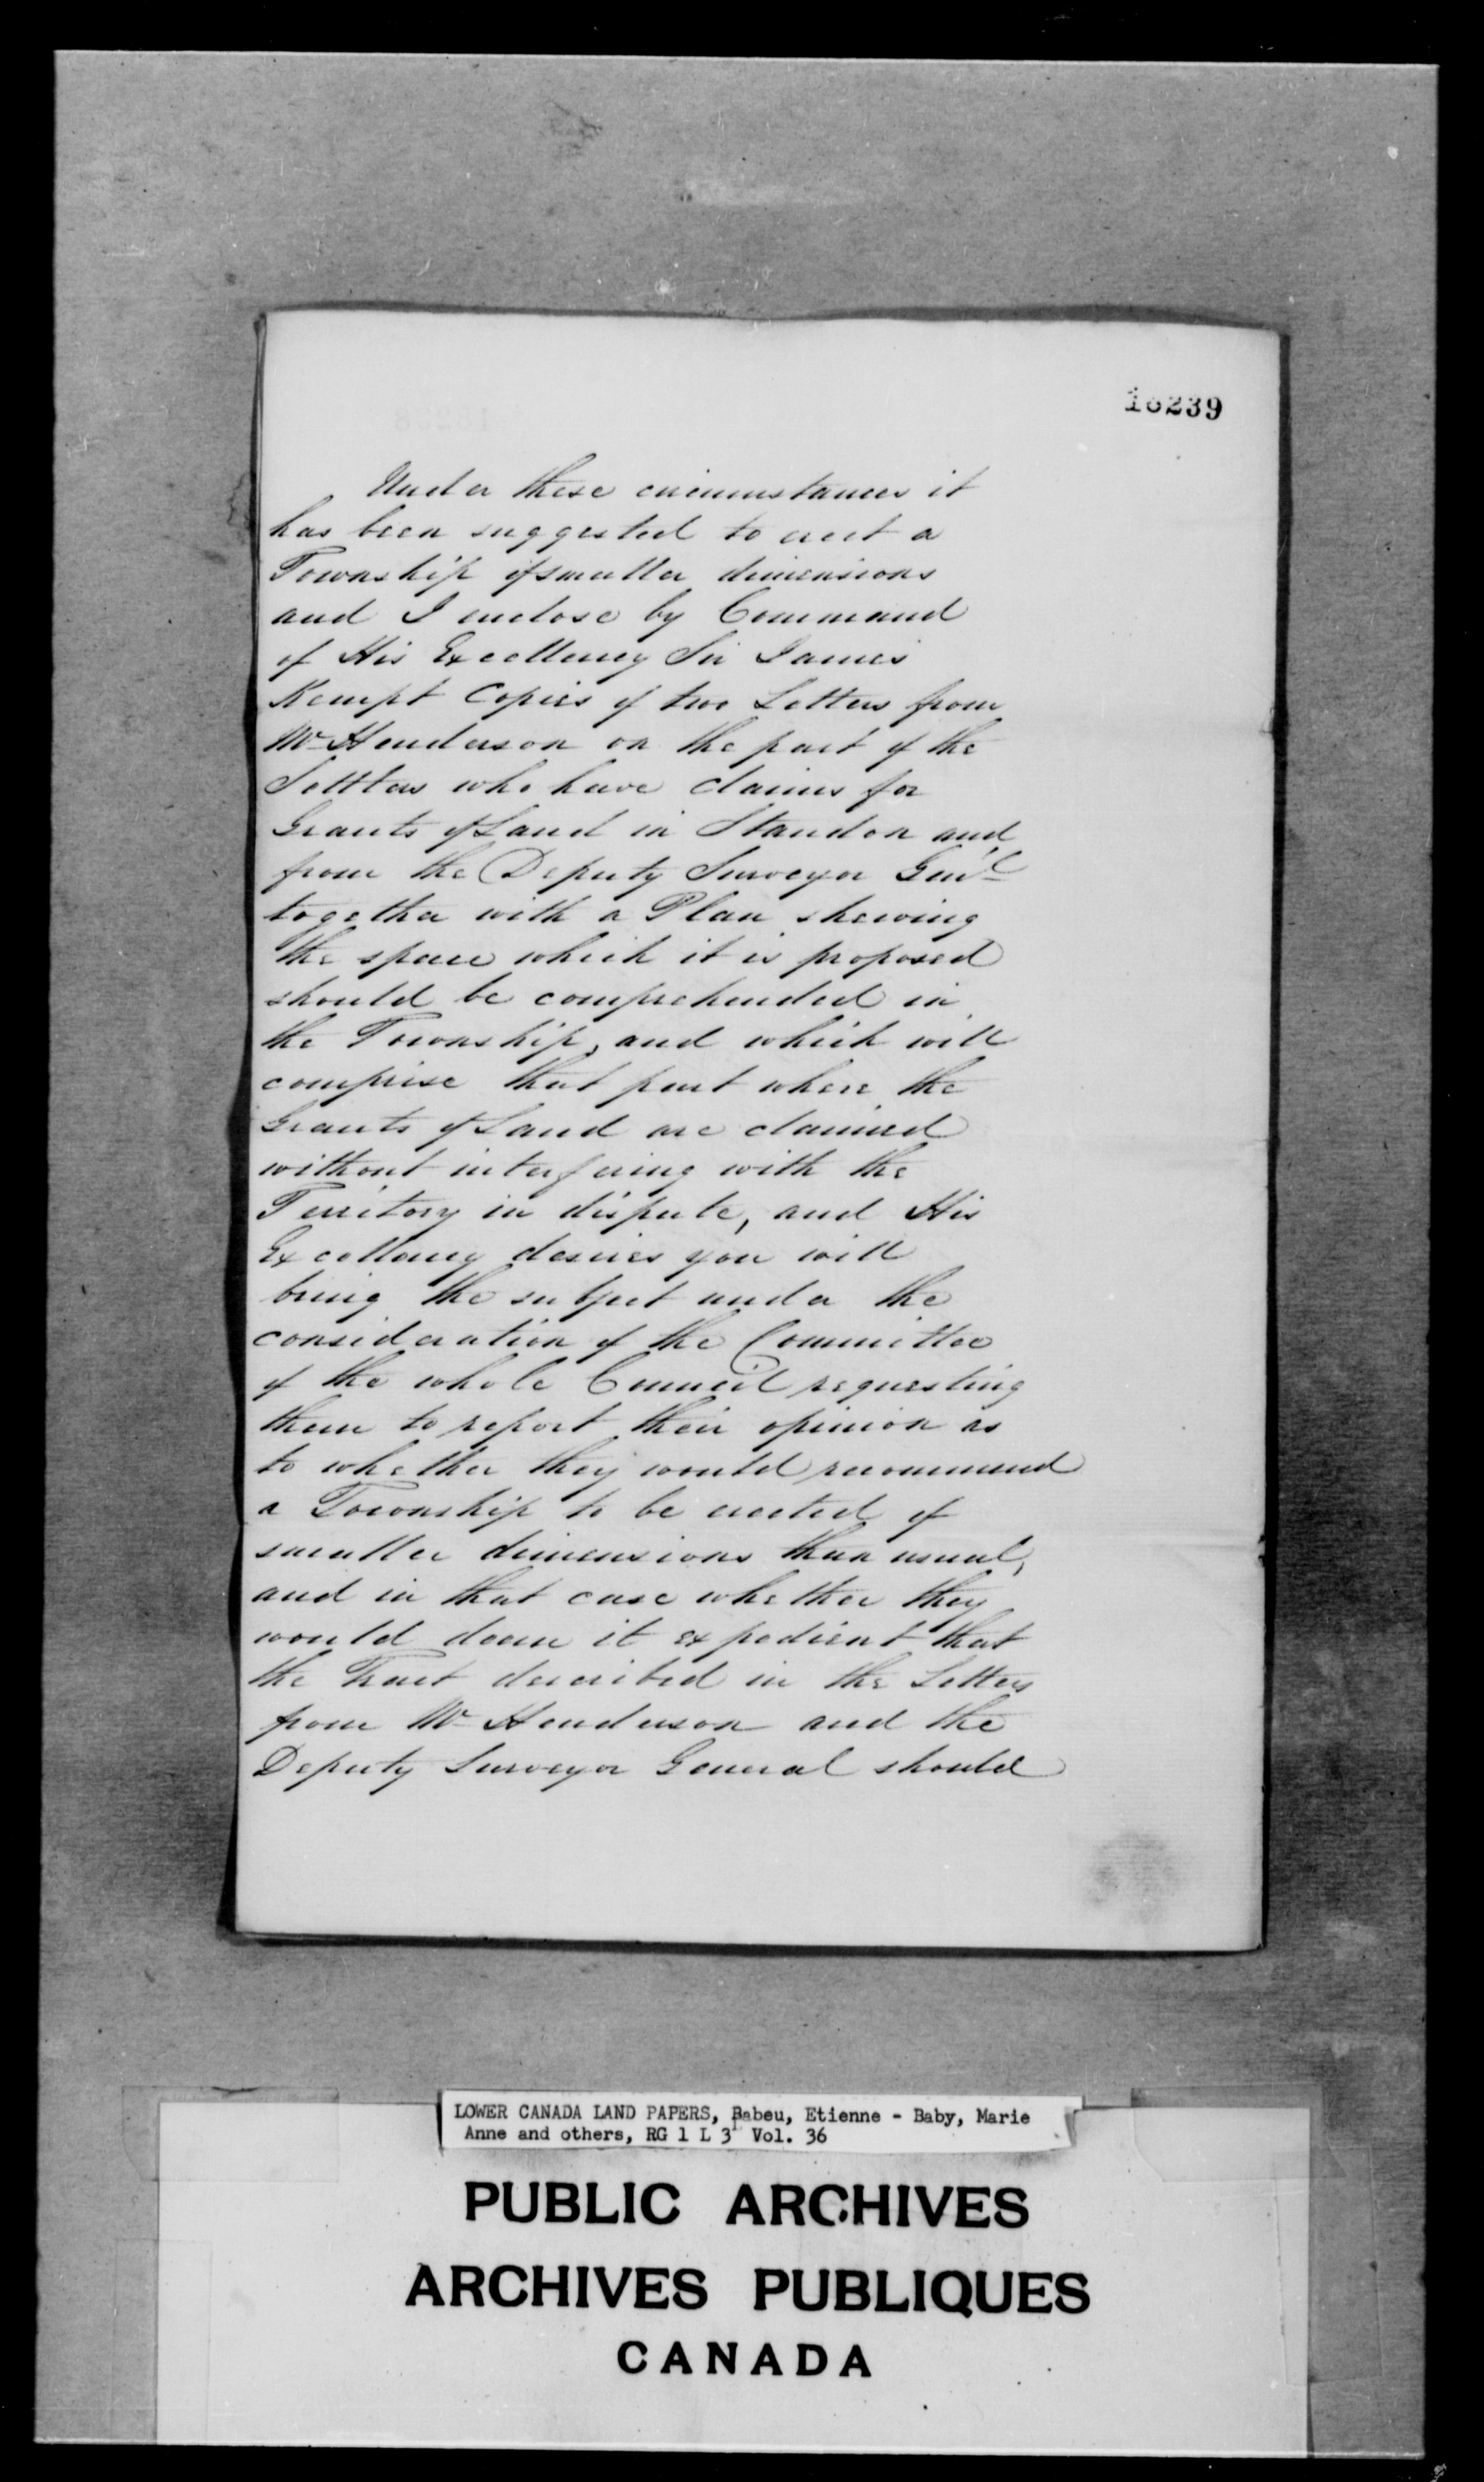 18239
Under these circumstances it
has been suggested to erect a
Township of smaller dimensions
and I enclose by Command
of His Excellency Sir James
Kempt Copies of two Letters from
Mr Henderson on the part of the
Settlers who have claims for
Grants of Land in Standon and
from the Deputy Surveyor Gen'l
together with a Plan shewing
the space which it is proposed
should be comprehended in
the Township, and which will
comprise that part where the
Grants of Land are claimed
without interfering with the
Territory in dispute, and His
Excellency desires you will
bring the subject under the
consideration of the Committee
of the whole Council requesting
them to report their opinion as
to whether they would recommend
a Township to be erected of
smaller dimensions than usual,
and in that case whether they
would deem it expedient that
the Tract described in the Letters
from Mr Henderson and the
Deputy Surveyor General should
LOWER CANADA LAND PAPERS, Babeu, Etienne - Baby, Marie
Anne and others, RG 1 L 3 Vol. 36
PUBLIC ARCHIVES
ARCHIVES PUBLIQUES
CANADA